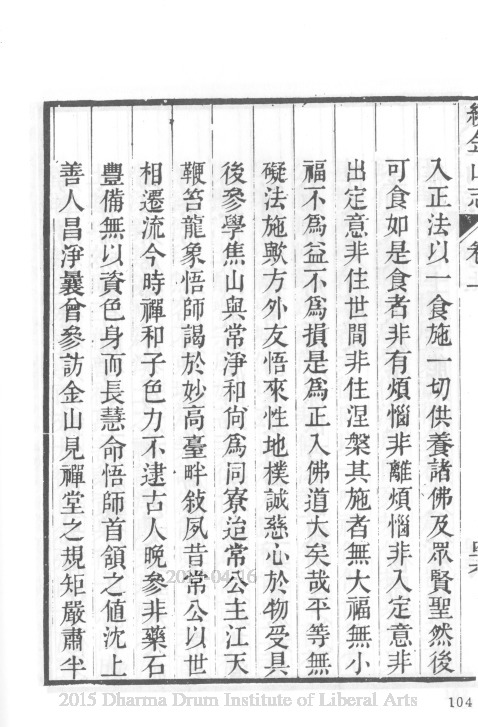 續金山志 卷一
入正法以一食施一切供養諸佛及眾賢聖然後
可食如是食者非有煩惱非離煩惱非入定意非
出定意非住世間非住涅槃其施者無大福無小
福不爲益不爲損是爲正入佛道大矣哉平等無
礙法施歟方外友悟來性地樸誠慈心於物受具
後參學焦山與常淨和尙爲同寮迨常公主江天
鞭笞龍象悟師謁於妙高臺畔敍夙昔常公以世
相遷流今時禪和子色力不逮古人晚參非藥石
豐備無以資色身而長慧命悟師首頷之値沈上
善人昌淨曩曾參訪金山見禪堂之規矩嚴肅半
2015 Dharma Drum Institute of Liberal Arts
104